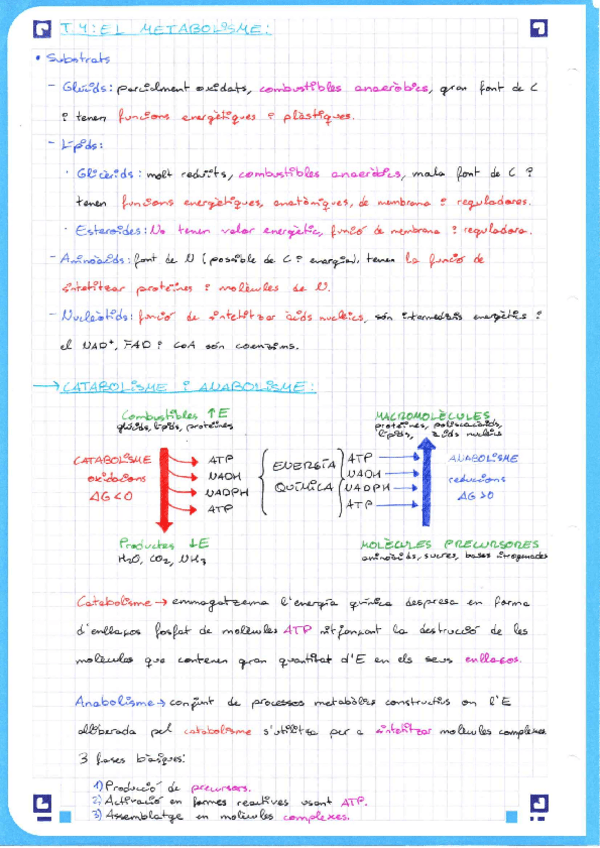 T.4: EL METABOLISME:
• Substrats
- Glúcids: parcialment oxidats, combustibles anaeròbics, gran font de C
i tenen funcions energètiques i plàstiques.
- Lípids:
· Glicèrids: molt reduïts, combustibles anaeròbics, mala font de C i
tenen funcions energètiques, anatòmiques, de membrana i reguladores.
· Esteroides: No tenen valor energètic, funció de membrana i reguladora.
- Aminoàcids: font de N (possible de C i energia), tenen la funció de
sintetitzar proteïnes i molècules de N.
- Nucleòtids: funció de sintetitzar àcids nucleics, són intermediaris energètics i
el NAD⁺, FAD i CoA són coenzims.
→ CATABOLISME i ANABOLISME:
Combustibles ↑E
glúcids, lípids, proteïnes
CATABOLISME
oxidacions
ΔG<0
ATP
NADH
NADPH
ATP
Productes ↓E
H₂O, CO₂, NH₃
ENERGÍA
QUÍMICA
ATP
NADH
NADPH
ATP
MACROMOLÈCULES
proteïnes, polisacàrids,
lípids, àcids nucleics
ANABOLISME
reduccions
ΔG>0
MOLÈCULES PRECURSORES
aminoàcids, sucres, bases nitrogenades
Catabolisme → emmagatzema l'energia química despresa en forma
d'enllaços fosfat de molècules ATP mitjançant la destrucció de les
molècules que contenen gran quantitat d'E en els seus enllaços.
Anabolisme → conjunt de processos metabòlics constructius on l'E
alliberada pel catabolisme s'utilitza per a sintetitzar molècules complexes
3 fases bàsiques:
1) Producció de precursors.
2) Activació en formes reactives usant ATP.
3) Assemblatge en molècules complexes.